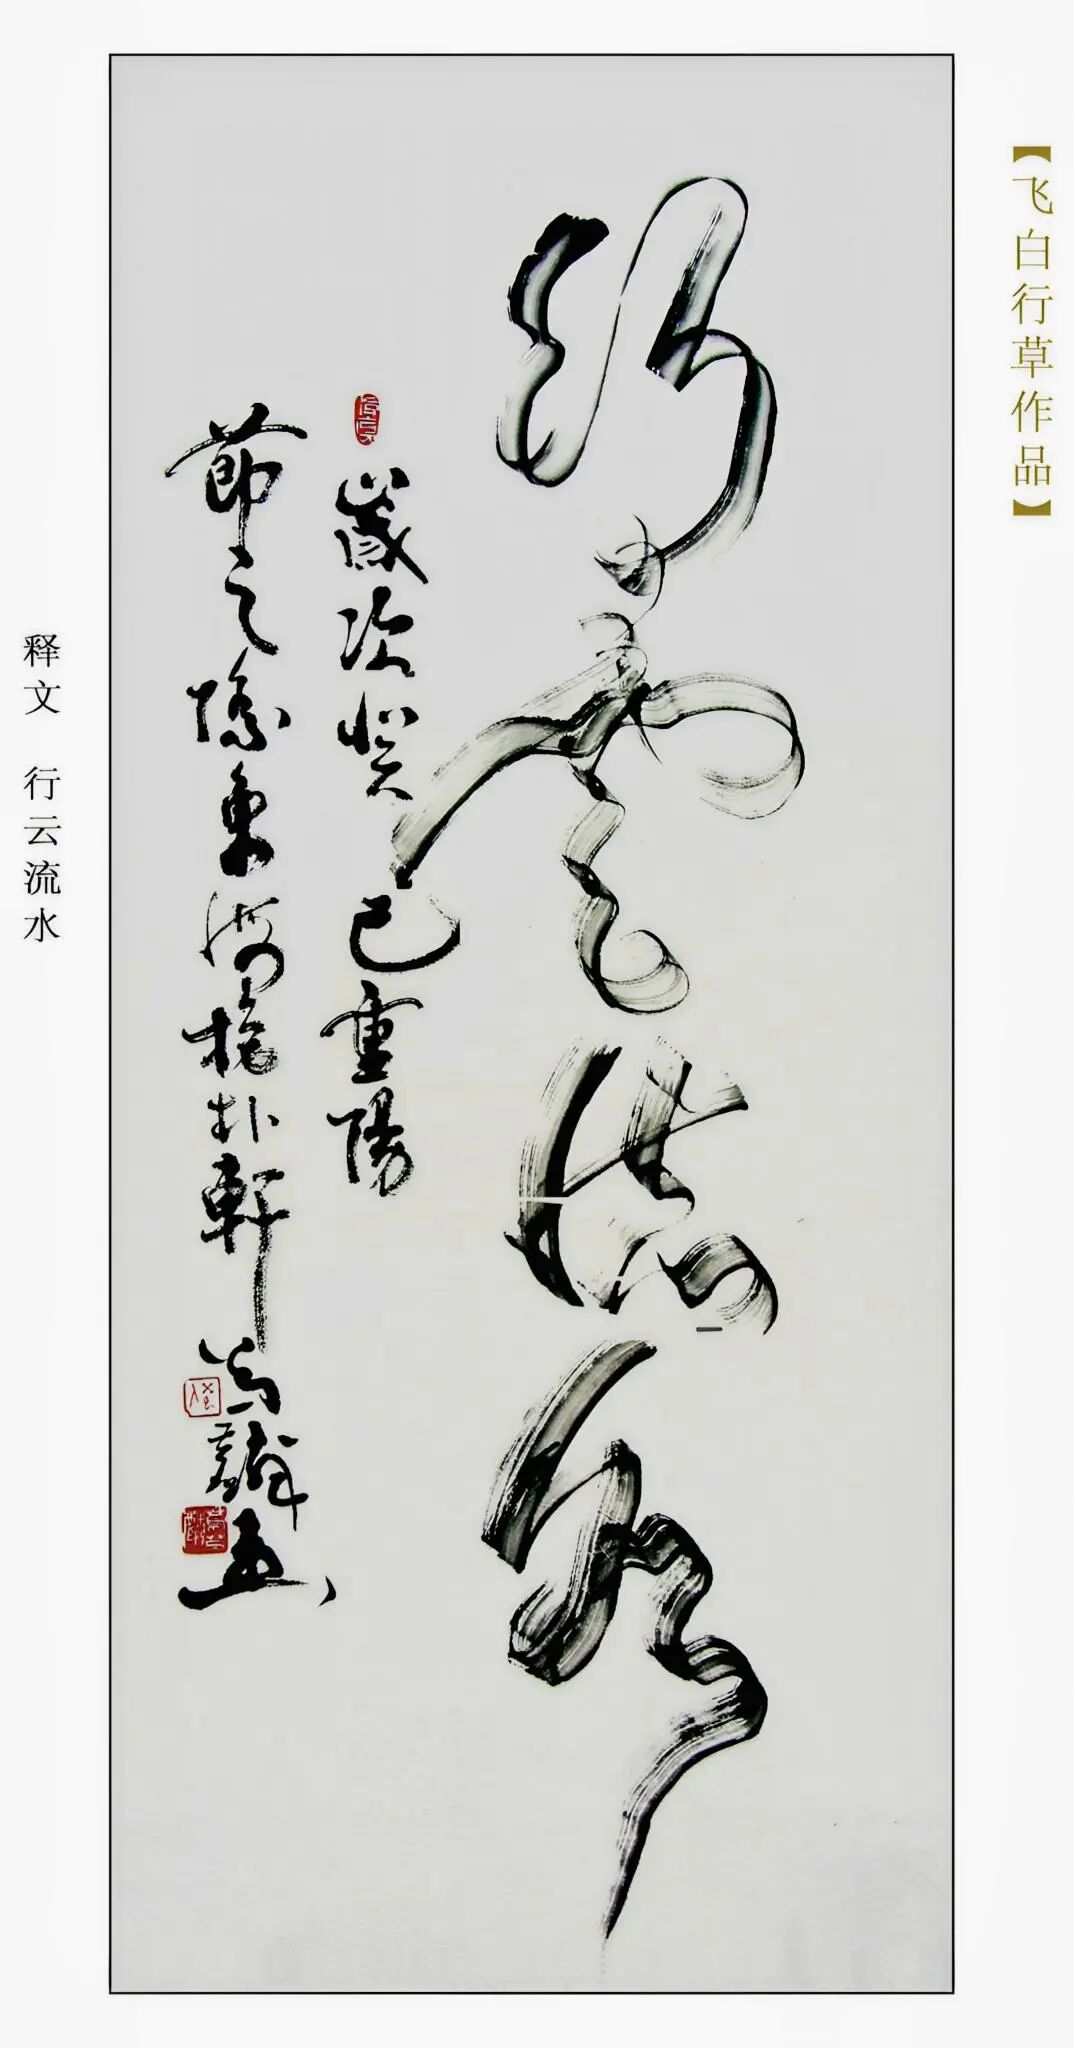 【飞白行草作品】
行雲流水
歲次癸巳重陽
節之際東海抱朴軒
释文 行云流水